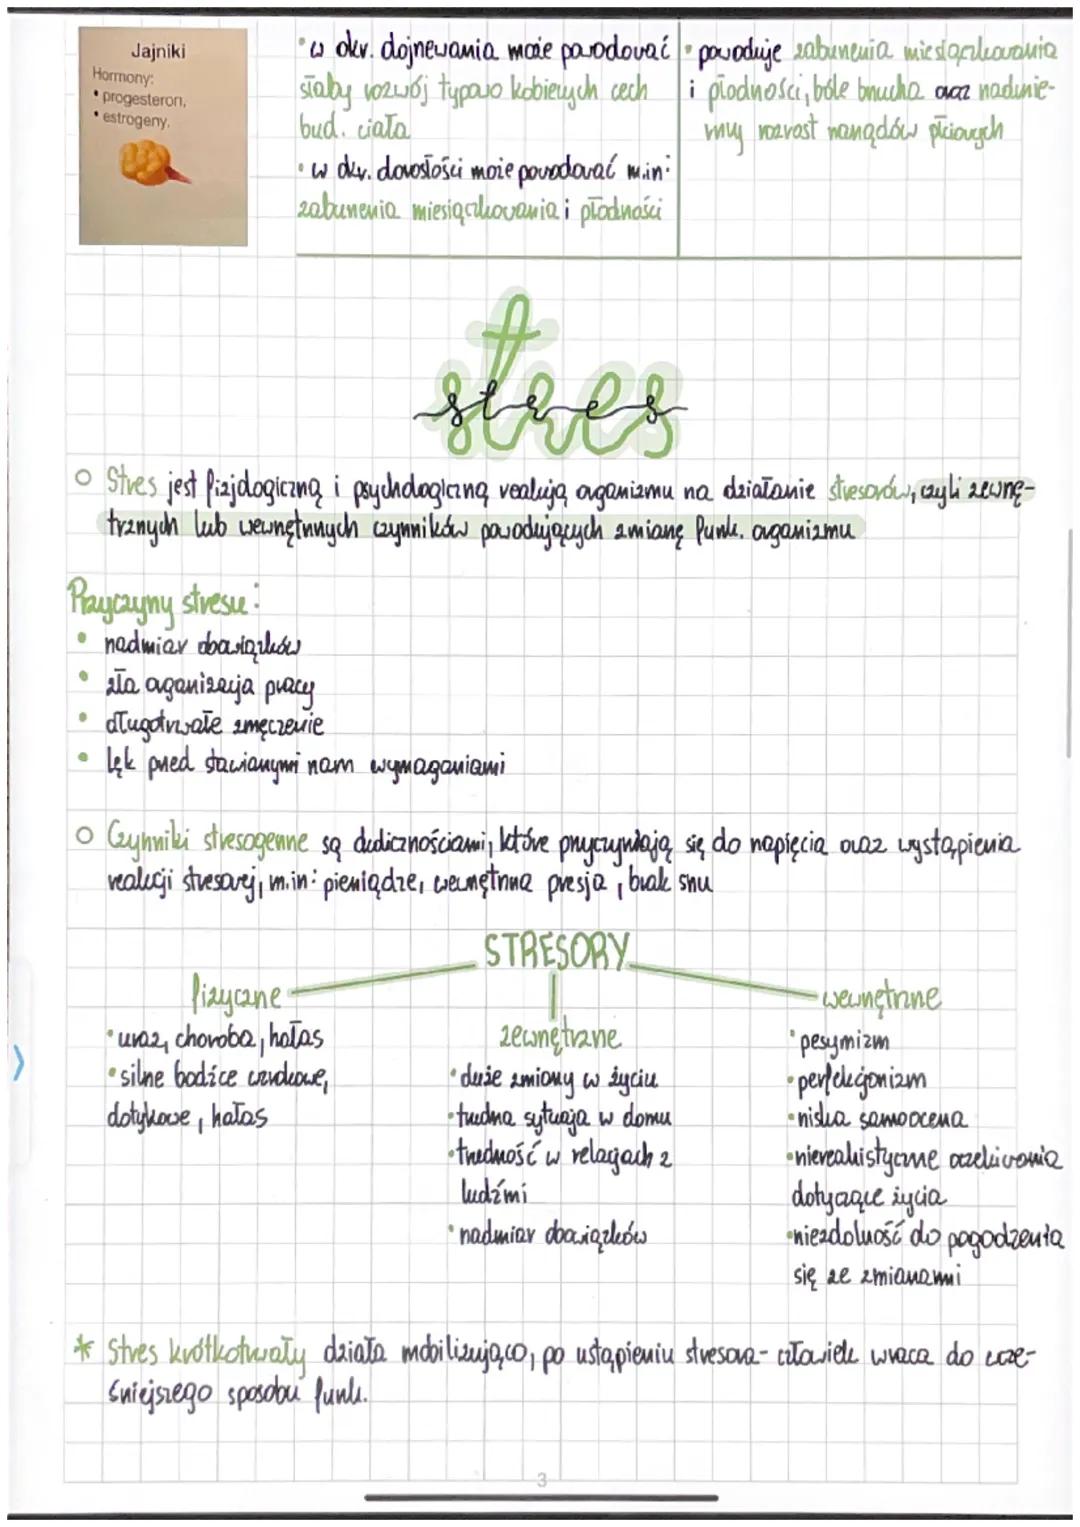 Jajniki
Hormony:
• progesteron,
• estrogeny.
• w okr. dojrzewania może powodować
słaby rozwój typowo kobiecych cech
bud. ciała
• w okr. dorosłości może powodować m.in:
zaburzenia miesiączkowania i płodności
• powoduje zaburzenia miesiączkowania
i płodności, bóle brzucha oraz nadmier-
rny rozrost narządów płciowych
stres
stres
○ Stres jest fizjologiczną i psychologiczną reakcją organizmu na działanie stresorów, czyli zewnę-
trznych lub wewnętrznych czynników powodujących zmianę funk. organizmu
Przyczyny stresu:
• nadmiar obowiązków
• zła organizacja pracy
• długotrwałe zmęczenie
• lęk przed stawianymi nam wymaganiami
○ Czynniki stresogenne są okolicznościami, które przyczyniają się do napięcia oraz wystąpienia
reakcji stresowej, m.in: pieniądze, wewnętrzna presja, brak snu
STRESORY
fizyczne
• uraz, choroba, hałas
• silne bodźce wzrokowe,
dotykowe, hałas
zewnętrzne
• duże zmiany w życiu
• trudna sytuacja w domu
• trudność w relacjach z
ludźmi
• nadmiar obowiązków
wewnętrzne
• pesymizm
• perfekcjonizm
• niska samoocena
• nierealistyczne oczekiwania
dotyczące życia
• niezdolność do pogodzenia
się ze zmianami
* Stres krótkotrwały działa mobilizująco, po ustąpieniu stresora - człowiek wraca do wcze-
śniejszego sposobu funk.
3